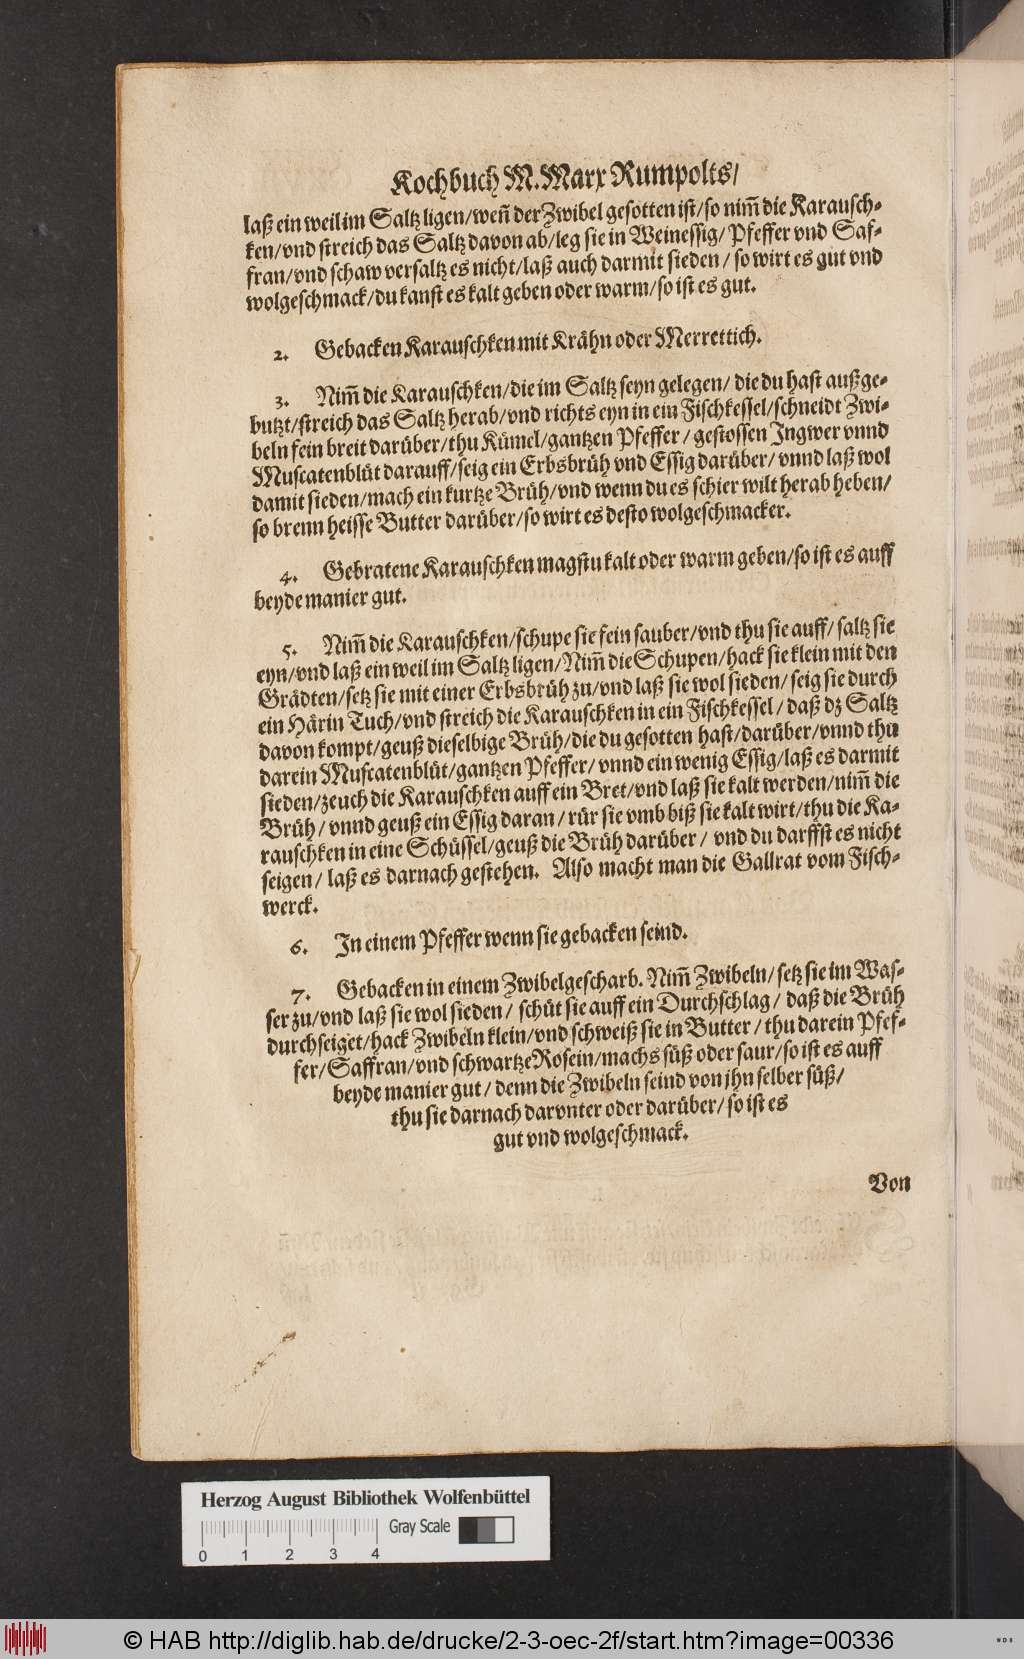 Kochbuch M. Marx Rumpolts/
laß ein weil im Saltz ligen/ weñ der Zwibel gesotten ist/ so nim̃ die Karausch-
ken/ vnd streich das Saltz davon ab/ leg sie in Weinessig/ Pfeffer vnd Saf-
fran/ vnd schaw versaltz es nicht/ laß auch darmit sieden/ so wirt es gut vnd
wolgeschmack/ du kanst es kalt geben oder warm/ so ist es gut.
2. Gebacken Karauschken mit Krähn oder Merrettich.
3. Nim̃ die Karauschken/ die im Saltz seyn gelegen/ die du hast außge-
butzt/ streich das Saltz herab/ vnd richts eyn in ein Fischkessel/ schneidt Zwi-
beln fein breit darüber/ thu Kümel/ gantzen Pfeffer/ gestossen Ingwer vnnd
Muscatenblüt darauff/ seig ein Erbsbrüh vnd Essig darüber/ vnnd laß wol
damit sieden/ mach ein kurtze Brüh/ vnd wenn du es schier wilt herab heben/
so brenn heisse Butter darüber/ so wirt es desto wolgeschmacker.
4. Gebratene Karauschken magstu kalt oder warm geben/ so ist es auff
beyde manier gut.
5. Nim̃ die Karauschken/ schupe sie fein sauber/ vnd thu sie auff/ saltz sie
eyn/ vnd laß ein weil im Saltz ligen/ Nim̃ die Schupen/ hack sie klein mit den
Grädten/ setz sie mit einer Erbsbrüh zu/ vnd laß sie wol sieden/ seig sie durch
ein Härin Tuch/ vnd streich die Karauschken in ein Fischkessel/ daß dz Saltz
davon kompt/ geuß dieselbige Brüh/ die du gesotten hast/ darüber/ vnnd thu
darein Muscatenblüt/ gantzen Pfeffer/ vnnd ein wenig Essig/ laß es darmit
sieden/ zeuch die Karauschken auff ein Bret/ vnd laß sie kalt werden/ nim̃ die
Brüh/ vnnd geuß ein Essig daran/ rür sie vmb biß sie kalt wirt/ thu die Ka-
rauschken in eine Schüssel/ geuß die Brüh darüber/ vnd du darffst es nicht
seigen/ laß es darnach gestehen. Also macht man die Gallrat vom Fisch-
werck.
6. In einem Pfeffer wenn sie gebacken seind.
7. Gebacken in einem Zwibelgescharb. Nim̃ Zwibeln/ setz sie im Was-
ser zu/ vnd laß sie wol sieden/ schüt sie auff ein Durchschlag/ daß die Brüh
durchseiget/ hack Zwibeln klein/ vnd schweiß sie in Butter/ thu darein Pfef-
fer/ Saffran/ vnd schwartze Rosein/ machs süß oder saur/ so ist es auff
beyde manier gut/ denn die Zwibeln seind von jhn selber süß/
thu sie darnach darvnter oder darüber/ so ist es
gut vnd wolgeschmack.
Von
Herzog August Bibliothek Wolfenbüttel
Gray Scale
0 1 2 3 4
© HAB http://diglib.hab.de/drucke/2-3-oec-2f/start.htm?image=00336